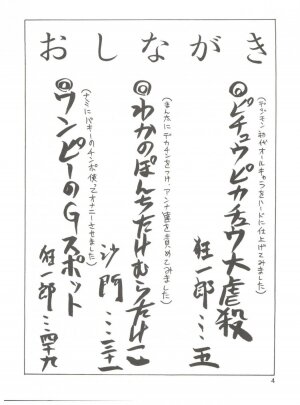 おしながき
(デジモン初代オールキャラをハードに仕上げてみました)
◎ピチュウピカチュウ大虐殺
狂一郎…五
にデカチンをつけ、アンナ達を責めてみました)
◎わかのぽんちたけむらたけ一
沙門…三十一
(ナミにバギーのチンポ使ってオナニーさせました)
◎ワンピーのGスポット
狂一郎…四十九
4